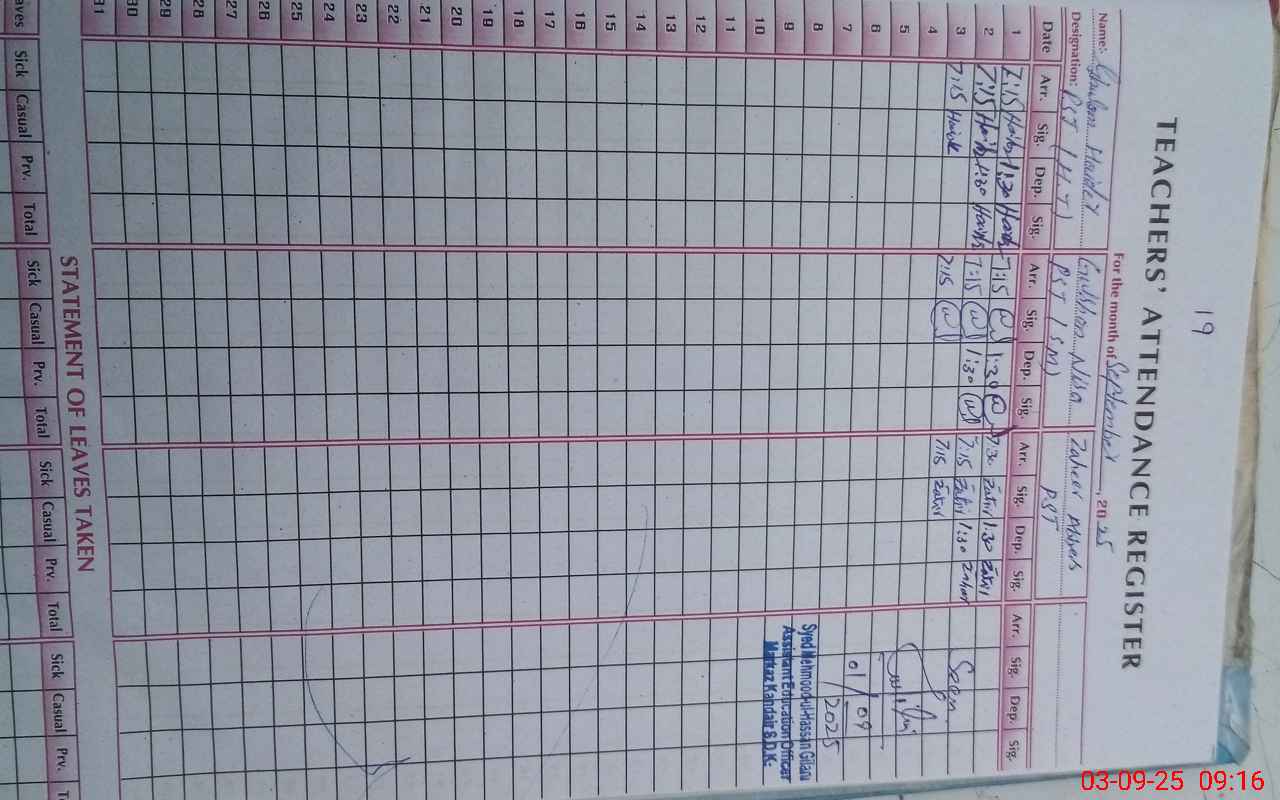 19
TEACHERS' ATTENDANCE REGISTER
For the month of September, 2025
Name: Ghulam Haider
Gulshan Nisa
Zaheer Abbas
Designation: PST (H.T)
PST (SM)
PST
Date Arr. Sig. Dep. Sig. Arr. Sig. Dep. Sig. Arr. Sig. Dep. Sig. Arr. Sig. Dep. Sig.
1 7:15 1:30 7:15 1:30 7:30 1:30
2 7:15 1:30 7:15 1:30 7:15 1:30
3 7:15 7:15 7:15 Seen
4
5
6
7 01/09/2025
8 Syed Mehmood-ul-Hassan Gilani
9 Assistant Education Officer
10 Markaz Kandair S.D.K.
11
12
13
14
15
16
17
18
19
20
21
22
23
24
25
26
27
28
29
30
31
STATEMENT OF LEAVES TAKEN
Sick Casual Prv. Total Sick Casual Prv. Total Sick Casual Prv. Total Sick Casual Prv.
Sick Casual Prv. Total Sick Casual Prv. Total Sick Casual Prv. Total Sick Casual Prv.
03-09-25 09:16